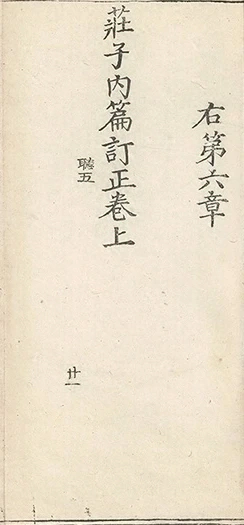 右第六章
莊子內篇訂正卷上
聽五
廿一